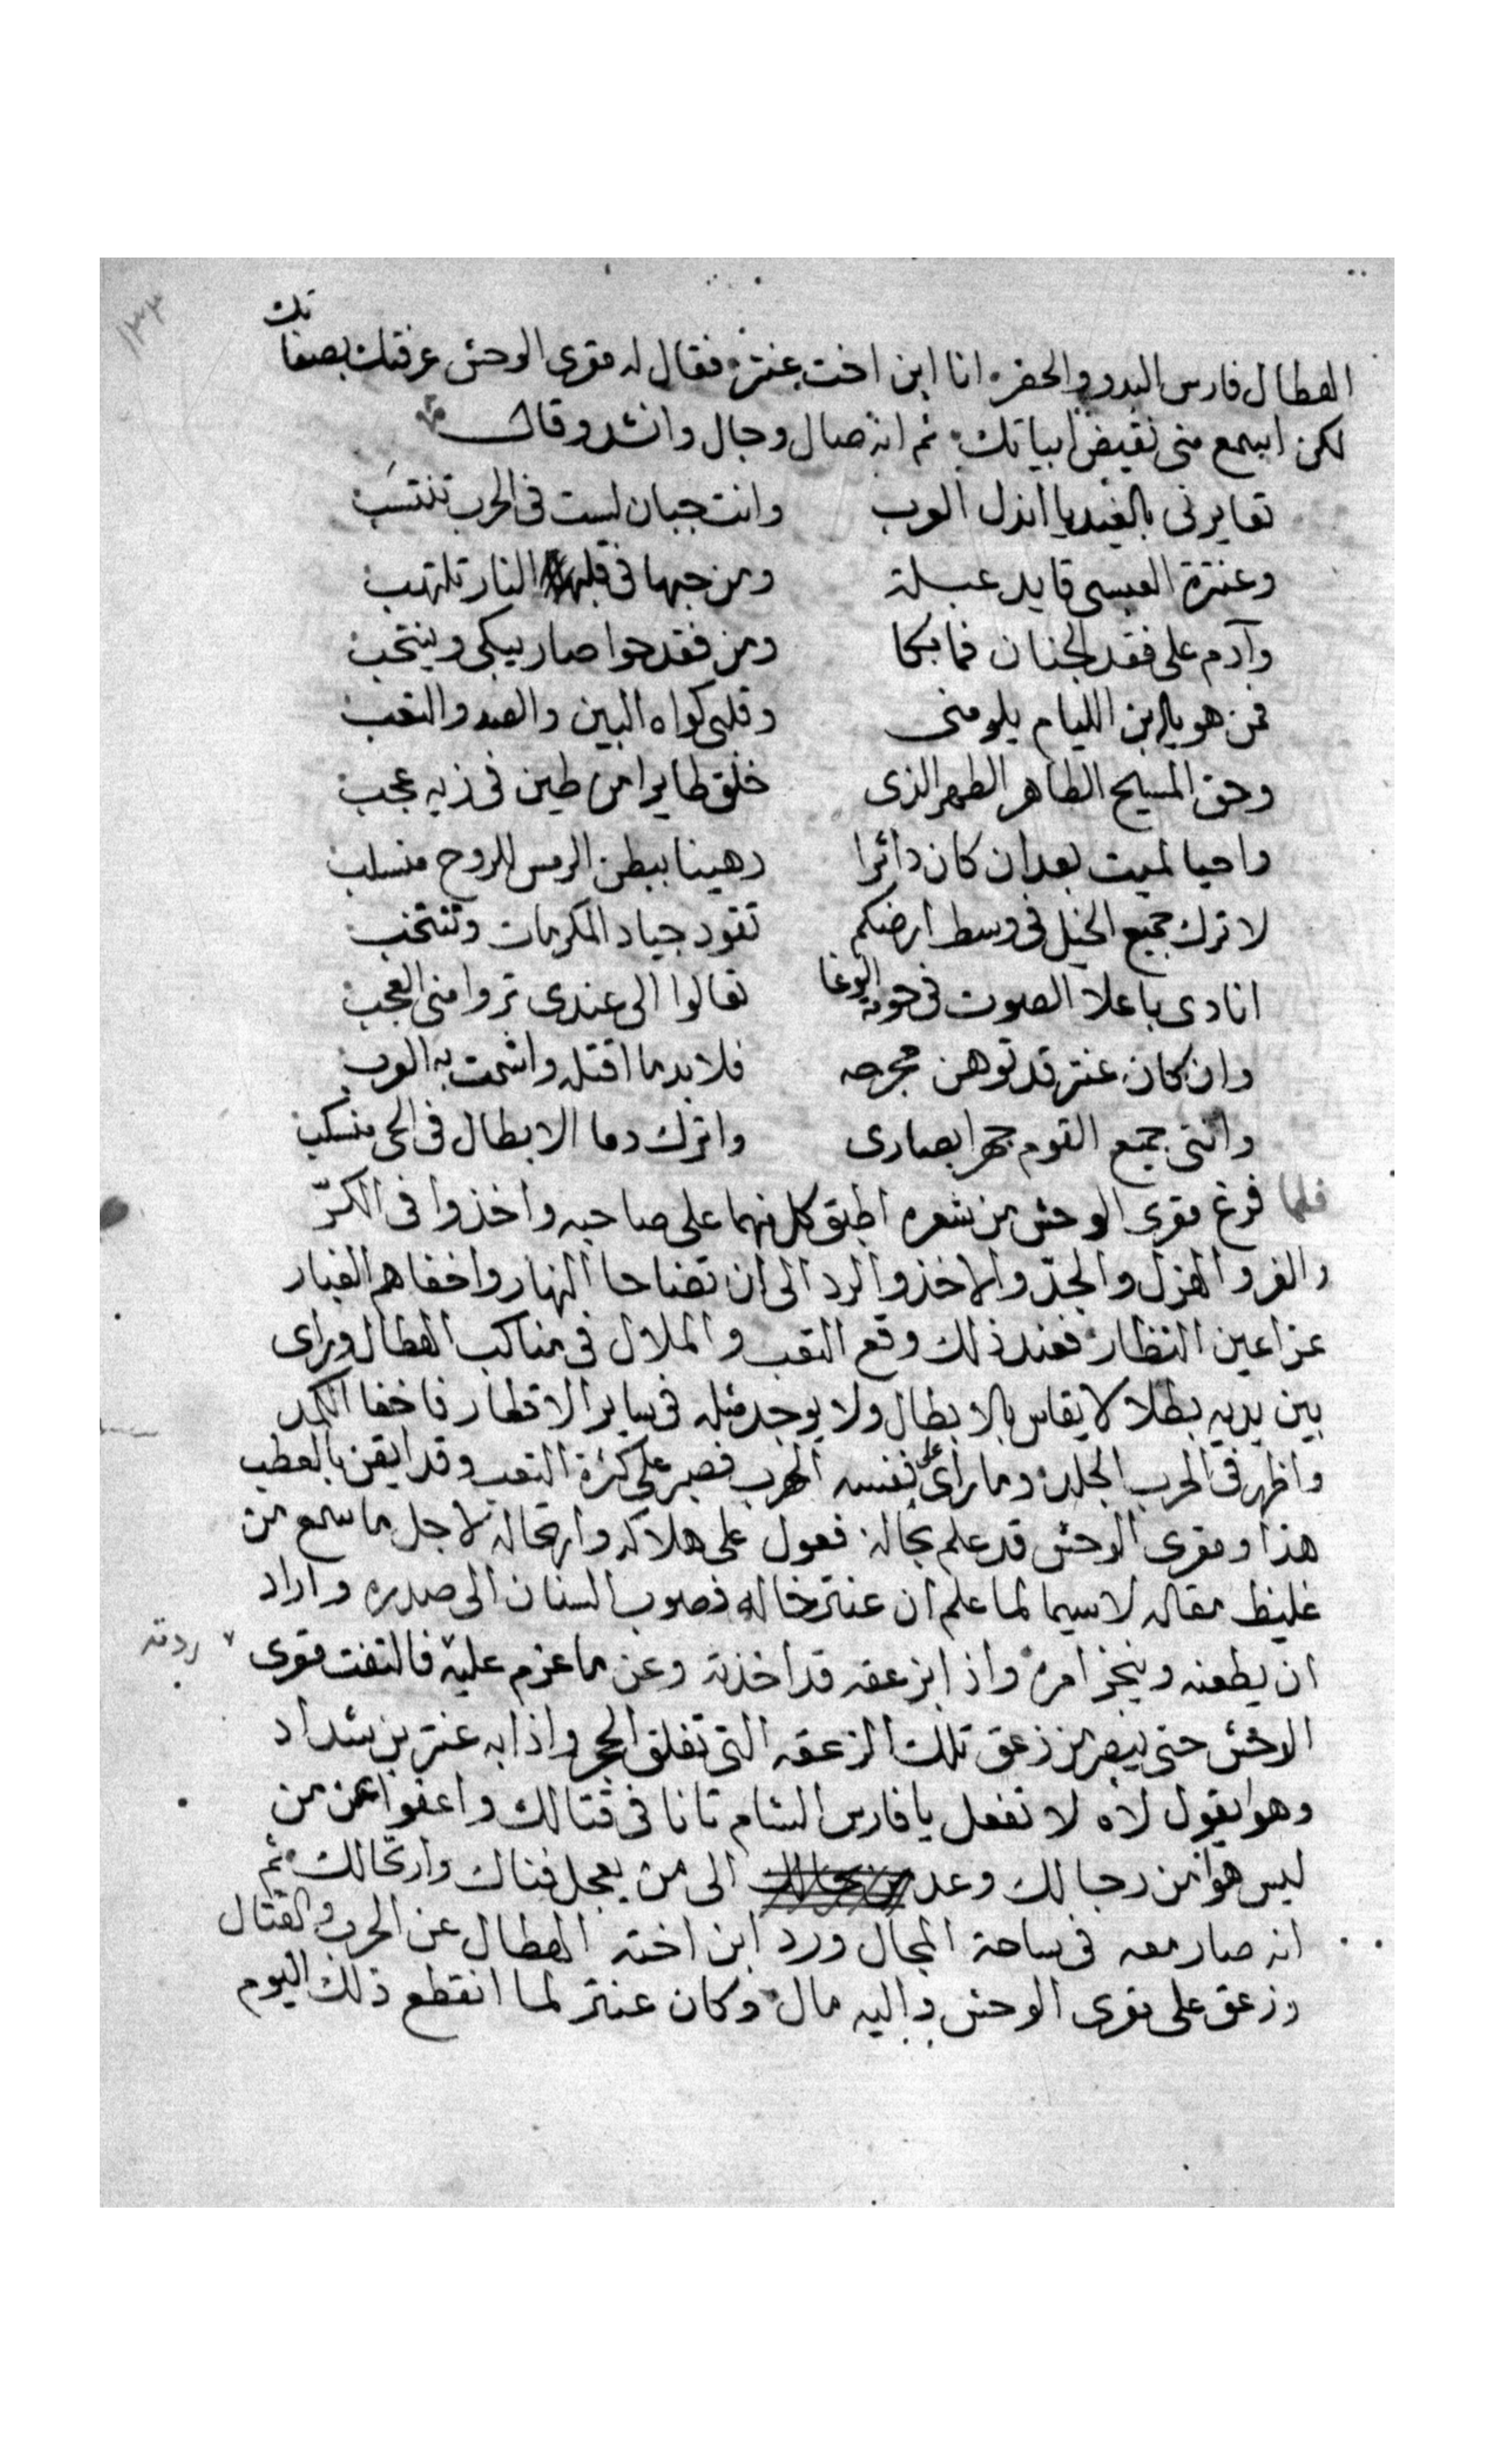 ١٣٣
الهطال فارس البدو والحضر انا ابن اخت عنتر فقال له مقرى الوحش عرفتك بصفاتك
لكن اسمع منى نقيض ابياتك ثم انه صال وجال وانشد وقال
تعايرنى بالغيد يا انذل العرب وانت جبان لست فى الحرب تنتسب
وعنترة العبسى قايد عبلة ومن حبها فى قلبه النار تلتهب
وآدم على فقد الجنان فما بكا ومن فقد حوا صار يبكى وينتحب
فمن هو يا ابن الليام يلومنى وقلبى كواه البين والصد والتعب
وحق المسيح الطاهر الطهر الذى خلق طايرا من طين فى زيه عجب
واحيا لميت بعد ان كان داثرا رهينا ببطن الرمس للروح منسلب
لاترك جميع الخيل فى وسط ارضكم تقود جياد المكرمات وتنتخب
انادى باعلا الصوت فى حومة الوغا تعالوا الى عندى تروا منى العجب
وان كان عنتر قد توهن مجرحه فلا بد ما اقتله واشمت به العرب
وافنى جميع القوم جهرا بصارمى واترك دما الابطال فى الحى منسكب
فلما فرغ مقرى الوحش من شعره اطبق كل منهما على صاحبه واخذوا فى الكرّ
والفر والهزل والجدّ والاخذ والرد الى ان تضاحا النهار واخفاهم الغبار
عن اعين النظار فعند ذلك وقع التعب والملال فى مناكب الهطال وراى
بين يديه بطلا لا يقاس بالابطال ولا يوجد مثله فى ساير الاقطار فاخفا الكمد
واظهر فى الحرب الجلد وما راى على نفسه الهرب فصبر على كثرة التعب وقد ايقن بالعطب
هذا ومقرى الوحش قد علم بحاله فعول على هلاكه وارتحاله لاجل ما سمع من
غليظ مقاله لاسيما لما علم ان عنتر خاله فصوب السنان الى صدره واراد
ان يطعنه وينجز امره واذا بزعقه قد اخذته وعن ما عزم عليه فالتفت مقرى
ردته
الوحش حتى يبصر من زعق تلك الزعقه التى تفلق الحجر واذا به عنتر بن شداد
وهو يقول لاه لا تفعل يا فارس الشام تانا فى قتالك واعفوا عمن من
ليس هو من رجالك وعد الى من يعجل فناك وارتحالك ثم
انه صار معه فى ساحة المجال ورد ابن اخته الهطال عن الحرب والقتال
وزعق على مقرى الوحش واليه مال وكان عنتر لما انقطع ذلك اليوم